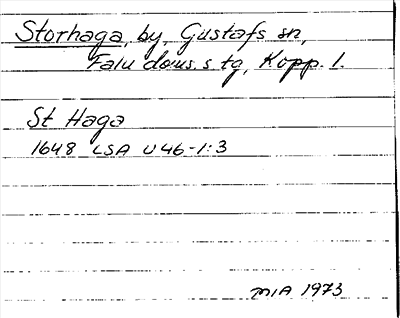 Storhaga, by, Gustafs sn,
Falu doms. s. tg, Kopp. l.
St Haga
1648 LSA U46-1:3
MIA 1973